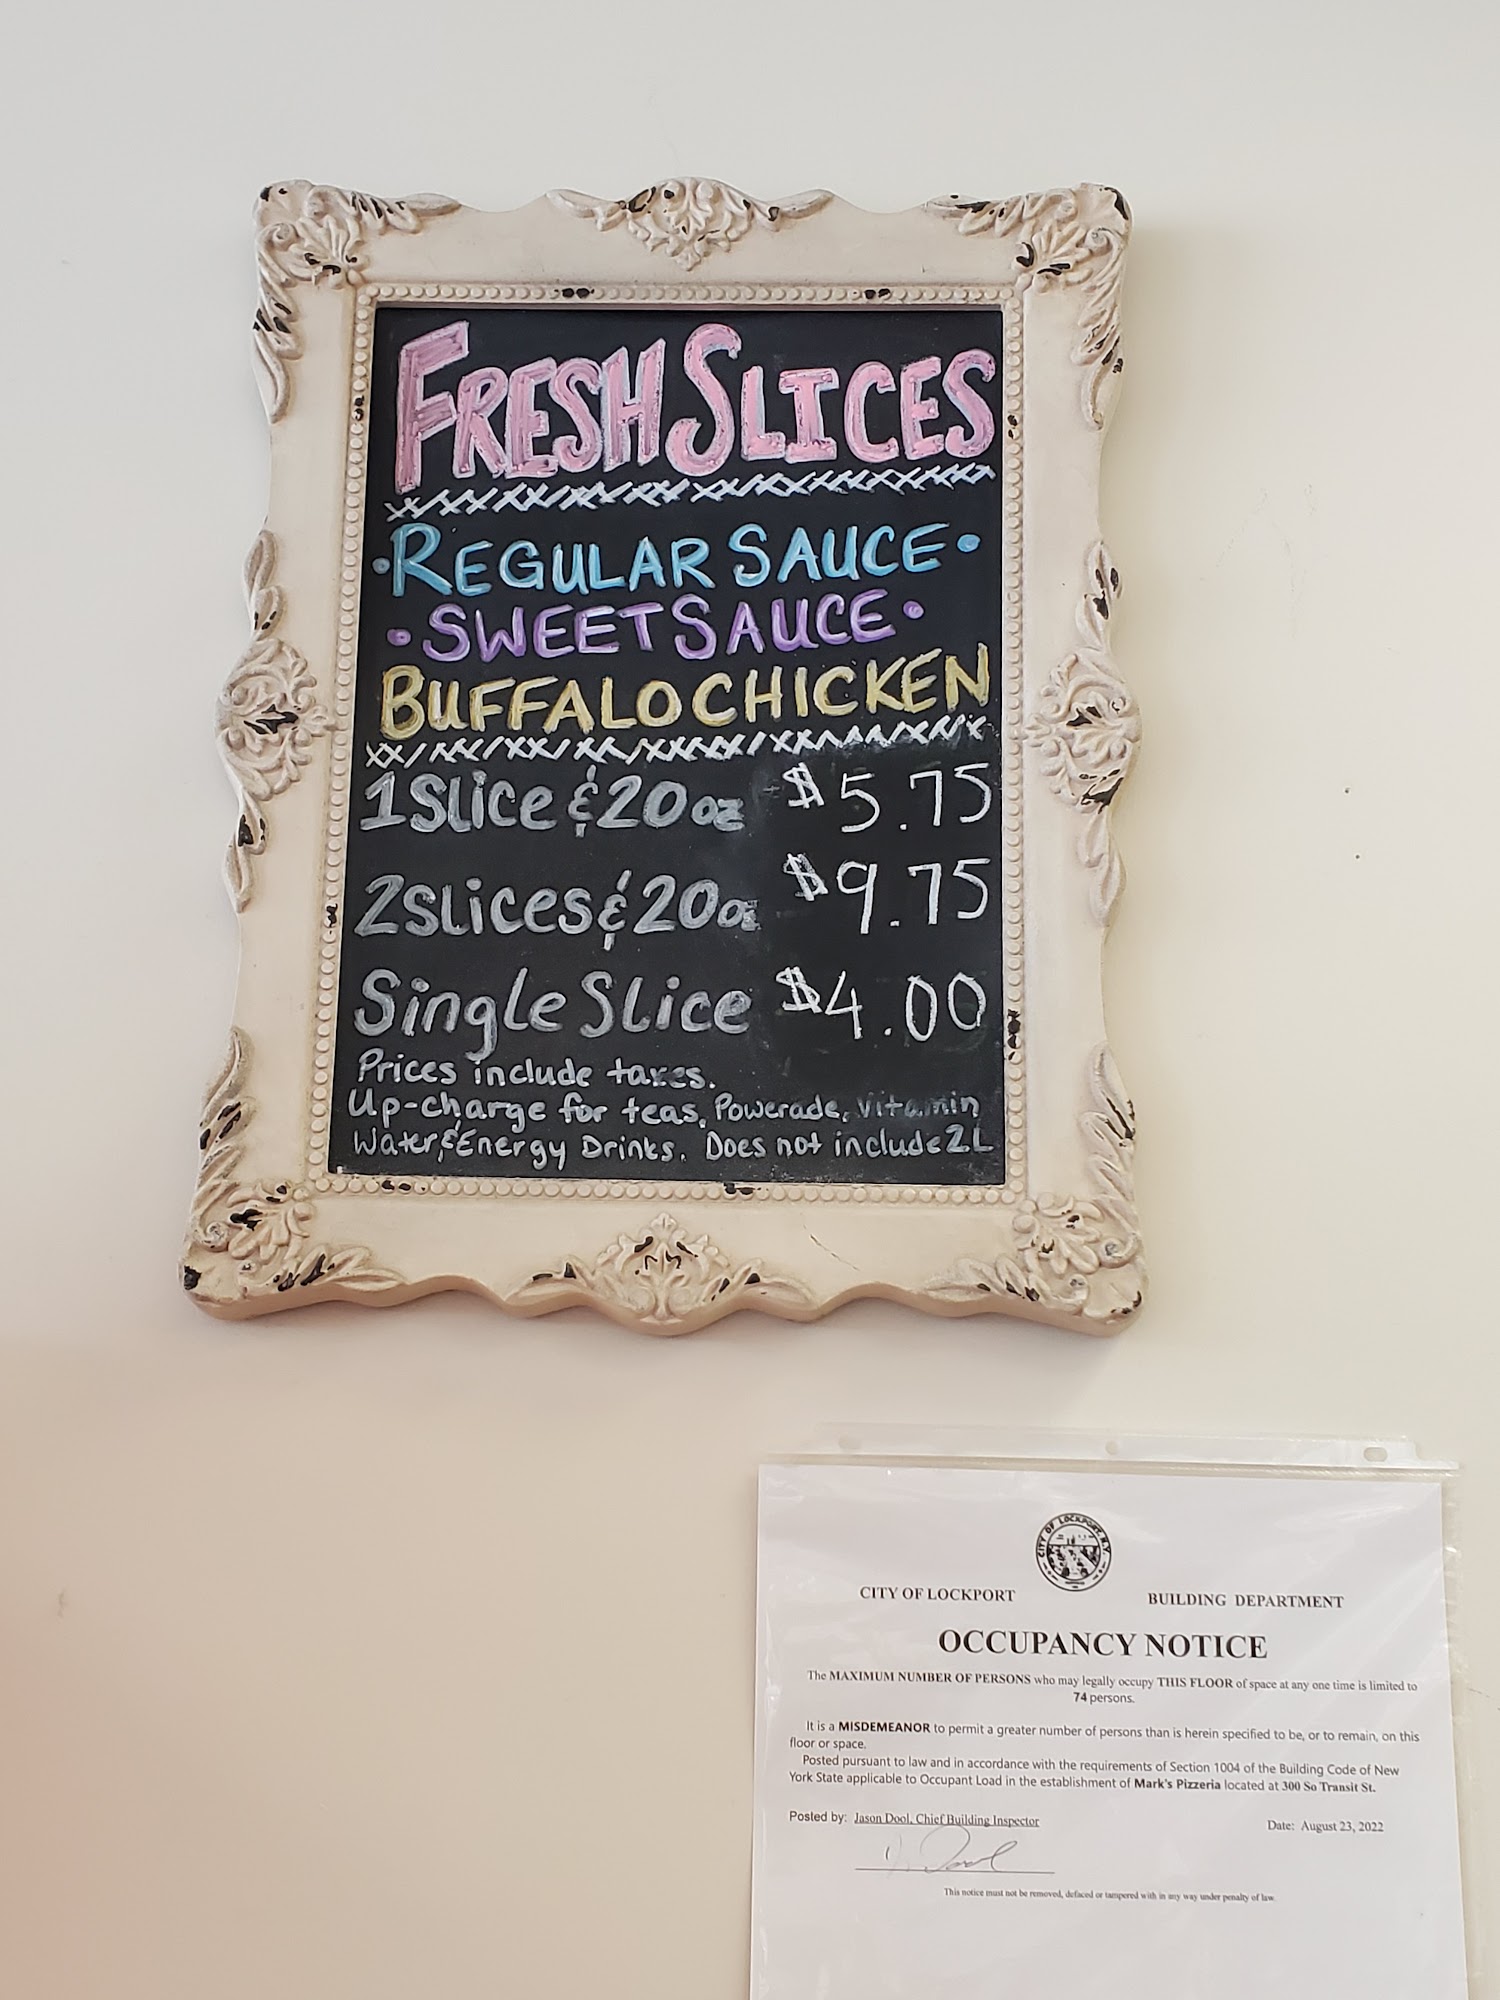 FRESH SLICES
• REGULAR SAUCE •
• SWEET SAUCE •
BUFFALO CHICKEN
1 Slice & 20 oz $5.75
2 slices & 20 oz $9.75
Single Slice $4.00
Prices include taxes.
Up-charge for teas, Powerade, Vitamin
Water, & Energy Drinks. Does not include 2L
CITY OF LOCKPORT, N.Y.
CITY OF LOCKPORT BUILDING DEPARTMENT
OCCUPANCY NOTICE
The MAXIMUM NUMBER OF PERSONS who may legally occupy THIS FLOOR of space at any one time is limited to
74 persons.
It is a MISDEMEANOR to permit a greater number of persons than is herein specified to be, or to remain, on this
floor or space.
Posted pursuant to law and in accordance with the requirements of Section 1004 of the Building Code of New
York State applicable to Occupant Load in the establishment of Mark's Pizzeria located at 300 So Transit St.
Posted by: Jason Dool, Chief Building Inspector Date: August 23, 2022
This notice must not be removed, defaced or tampered with in any way under penalty of law.